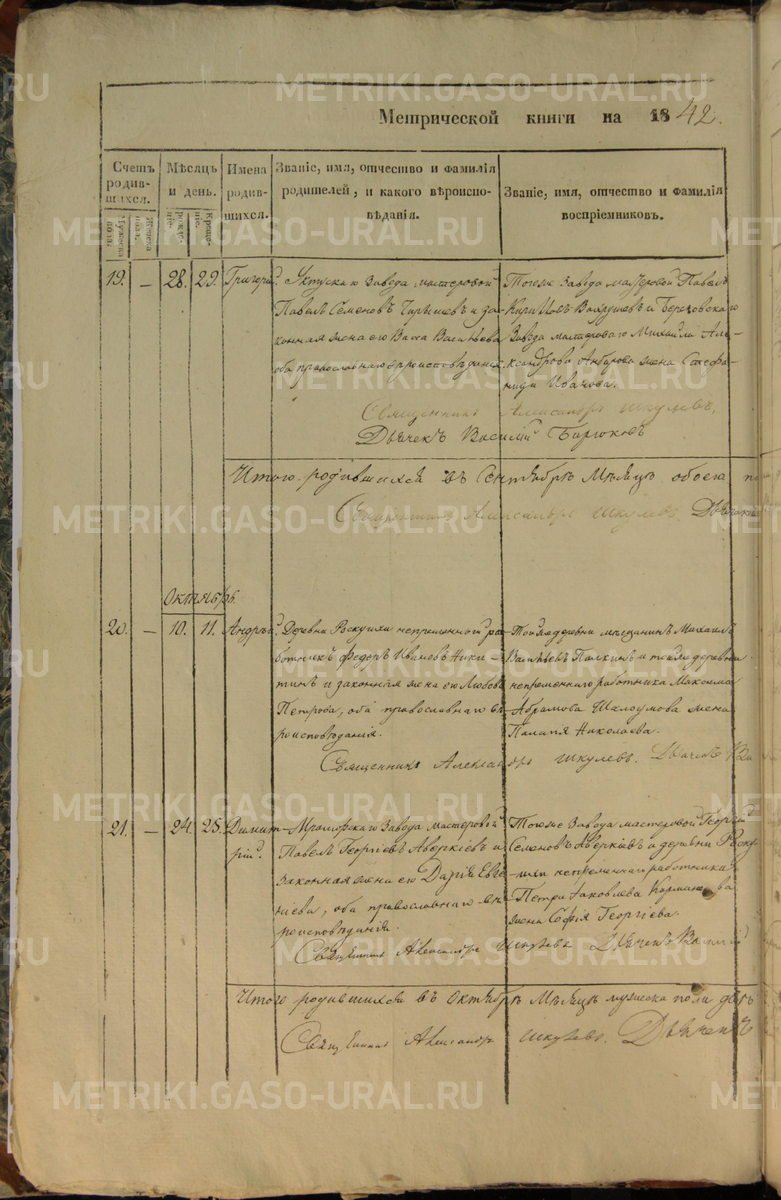 METRIKI.GASO-URAL.RU
Метрической книги на 1842.
Счетъ родившихся.
Мужеска пола.
Женска пола.
Мѣсяцъ и день.
рожденіе.
Крещеніе.
Имена родившихся.
Званіе, имя, отчество и фамилія родителей, и какого вѣроисповѣданія.
Званіе, имя, отчество и фамилія воспріемниковъ.
19. — 28. 29. Григорій.
Завода мастеровой
Павелъ Семеновъ и за-
конная жена его Васса Васильева
оба православнаго вѣроисповѣданія.
Тогоже Завода мастеровой Павелъ
Кириловъ Вахрушевъ и Березовскаго
Завода мастероваго Михаила Але-
ксандрова жена Стефа-
нида Иванова.
Священникъ Александръ Шкулевъ.
Дьячекъ Василій Бирюковъ
Итого родившихся въ Сентябрѣ Мѣсяцѣ обоего по
Священникъ Александръ Шкулевъ Дьячекъ
Октябрь
20. — 10. 11. Андрей.
Деревни Роскуихи непременного ра-
ботникъ Федоръ Ивановъ Ники-
тинъ и законная жена его Любовь
Петрова, оба православнаго вѣ-
роисповѣданія.
Тойже деревни мещанинъ Михаилъ
Палкинъ и тойже деревни
непременнаго работника Максима
Абрамова Шалоумова жена
Николаева.
Священникъ Александръ Шкулевъ. Дьячекъ Ва
21. — 24. 25. Димит-
рій.
Мраморскаго Завода мастеровой
Павелъ Георгіевъ Аверкіевъ и
законная жена его Дарія Евге-
ніева, оба православнаго вѣ-
роисповѣданія.
Тогоже Завода мастеровой Георгій
Семеновъ Аверкіевъ и деревни Роску-
ихи непременнаго работника
Петра Яковлева
жена Софія Георгіева.
Священникъ Александръ Шкулевъ Дьячекъ Василій
Итого родившихся въ Октябрѣ Мѣсяцѣ мужеска пола два
Священникъ Александръ Шкулевъ. Дьячекъ